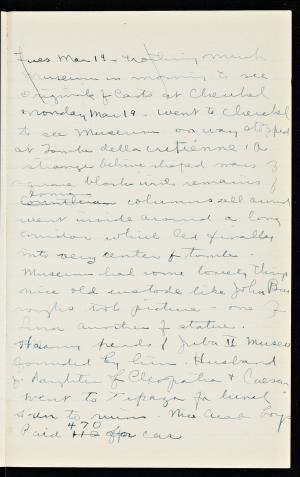 Tues Mar 19 - Nothing much
Museum in morning to see
originals of casts at Cherchel
Monday Mar 19. went to Cherchel
to see Museum on way stopped
at Tombe de la Cretienne. A
strange behive shaped mass of
square blocks with remains of
Ionic
Corinthian columns all around
went inside around a long
corridor which led finally
into very center of tombs.
Museum had some lovely things
nice old custode like John Bur
roughs took picture - one of
him another of statue.
Many heads of Juba II Museum
founded by him. Husband
of daughter of Cleopatra + Caesar
went to Tipaza for lunch
sun to ruins. Nice Arab boys
470
Paid 112 for car